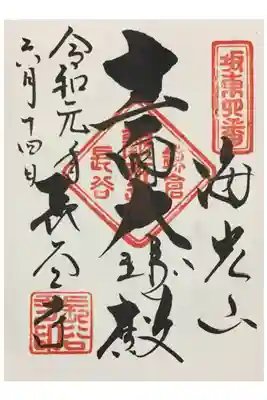 坂東四番
海光山
十一面大悲殿
鎌倉
長谷
長谷寺
令和元年
六月十四日